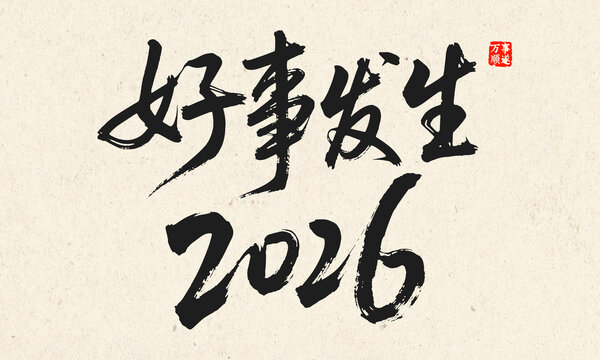 好事发生
2026
万事
顺遂